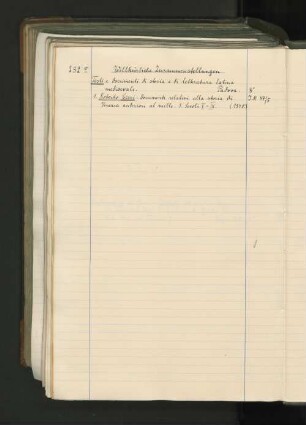 232 g.
Willkürliche Zusammenstellungen.
Testi e documenti di storia e di letteratura latina
medioevale. Padova. 8°
1. Roberto Cessi: Documenti relativi alla storia di
Venezia anteriori al mille. 1. Secoli V-IX. (1940)